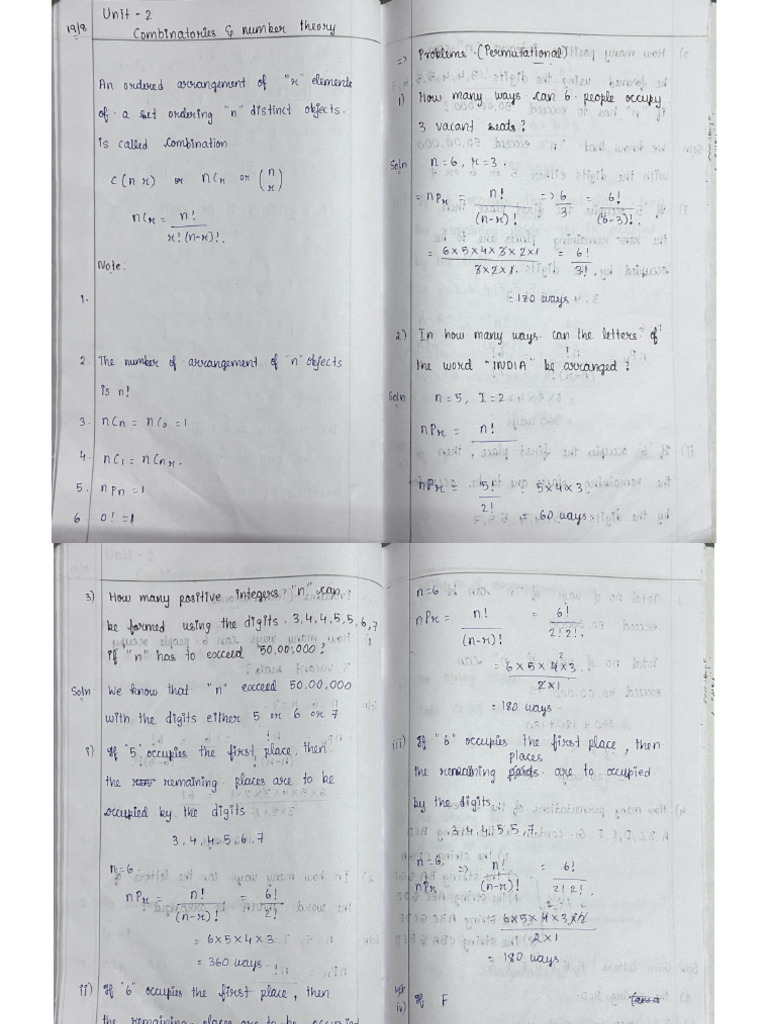 19/8
Unit - 2
Combinatories & number theory
An ordered arrangement of "r" elements
of a set ordering "n" distinct objects.
is called combination
C(n r) or nCr or (n r)
nCr = n!
r!(n-r)!.
Note:
1.
2. The number of arrangement of "n" objects
is n!
3. nCn = nC0 = 1
4. nC1 = nCnr.
5. nPn = 1
6. 0! = 1
=> Problems. (Permutational)
1) How many ways can 6 people occupy
3 vacant seats?
Soln n=6, r=3.
= nPr = n! / (n-r)! => 6/3 = 6! / (6-3)!
= 6x5x4x3x2x1 / 3x2x1. = 6! / 3!.
= 120 ways
2) In how many ways can the letters of
the word "INDIA" be arranged?
Soln n=5, I=2
nPr = n!
nPr = 5! / 2! = 5x4x3
= 60 ways.
3) How many positive integers "n" can
be formed using the digits 3,4,4,5,5,6,7
if "n" has to exceed 50,00,000?
Soln We know that "n" exceed 50,00,000
with the digits either 5 or 6 or 7
i) If "5" occupies the first place, then
the remaining places are to be
occupied by the digits
3,4,4,5,6,7
n=6
nPr = n! / (n-r)! = 6! / 2!
= 6x5x4x3
= 360 ways.
ii) If "6" occupies the first place, then
the remaining places are to be occupied
n=6
nPr = n! / (n-r)! = 6! / 2! 2!.
= 6x5x4x3 / 2x1
= 180 ways.
iii) If "6" occupies the first place, then
places
the remaining are to occupied
by the digits
3,4,4,5,5,7.
n=6
nPr => n! / (n-r)! = 6! / 2! 2!.
6x5x4x3x2 / 2x1
= 180 ways
iv) If F